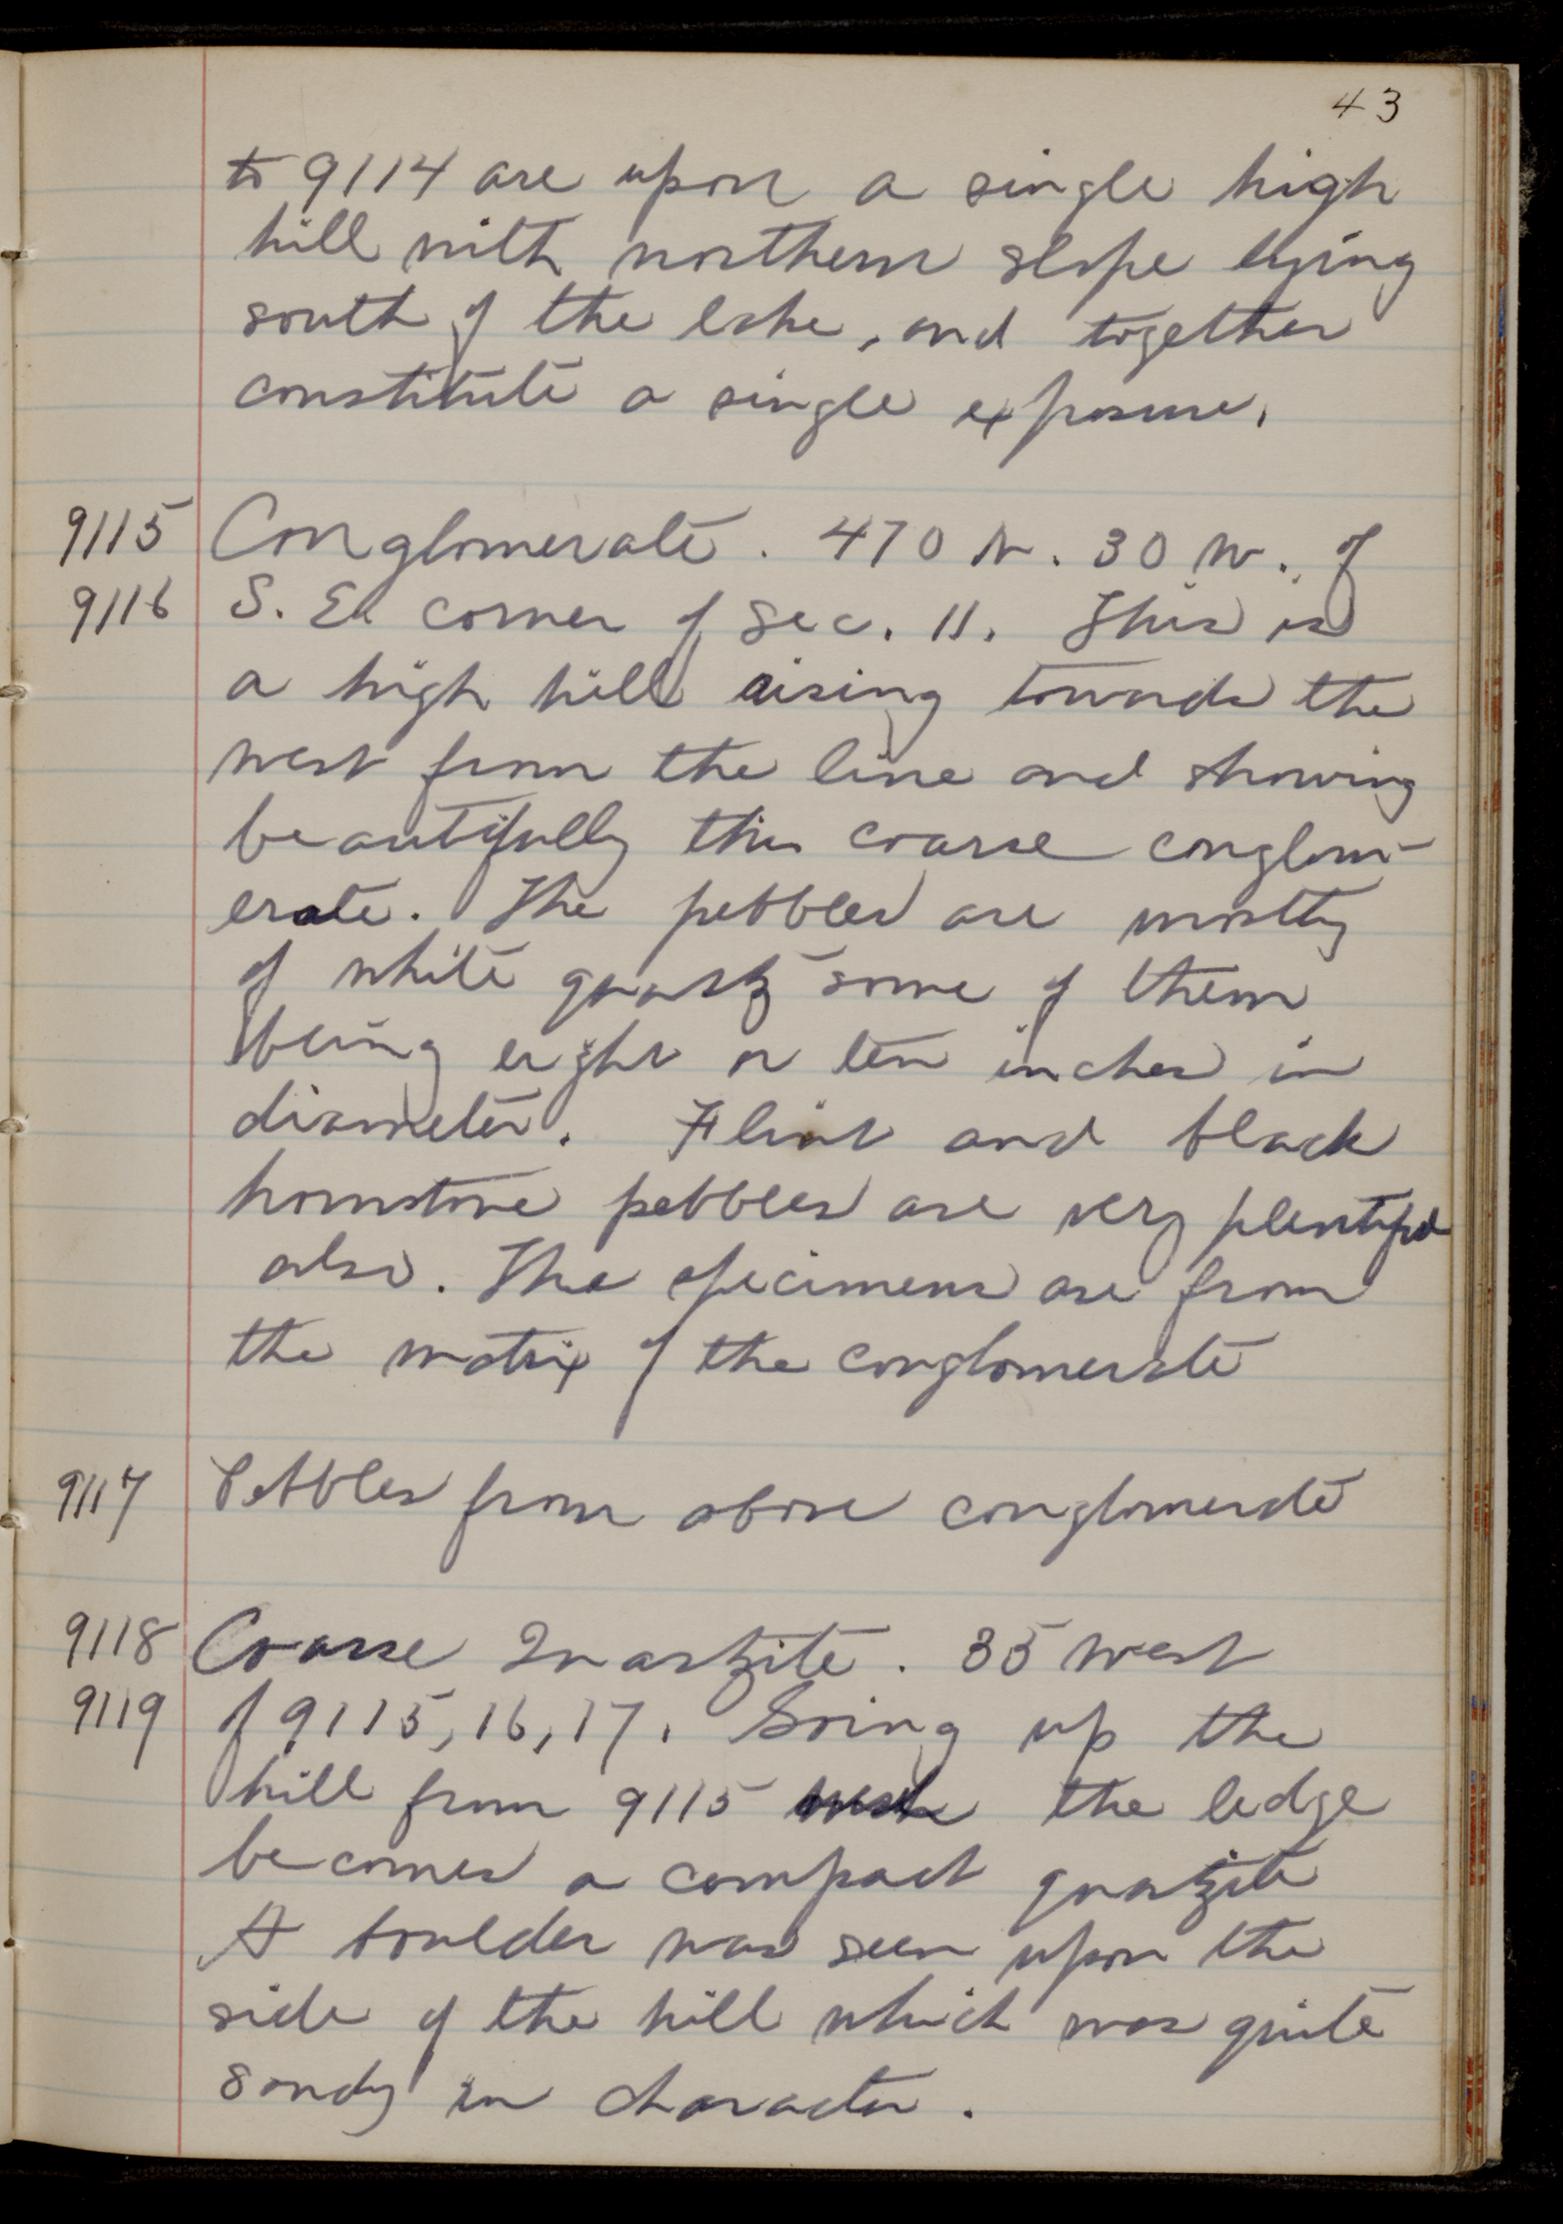 43
to 9114 are upon a single high
hill with northern slope lying
south of the lake, and together
constitute a single exposure.
9115 Conglomerate. 470 N. 30 W. of
9116 S. E. corner of Sec. 11. This is
a high hill rising towards the
west from the line and showing
beautifully this coarse conglom-
erate. The pebbles are mostly
of white quartz some of them
being eight or ten inches in
diameter. Flint and black
hornstone pebbles are very plentiful
also. The specimens are from
the matrix of the conglomerate
9117 Pebbles from above conglomerate
9118 Coarse Quartzite. 35 West
9119 of 9115, 16, 17. Going up the
hill from 9115 the ledge
becomes a compact quartzite
A boulder was seen upon the
side of the hill which was quite
sandy in character.